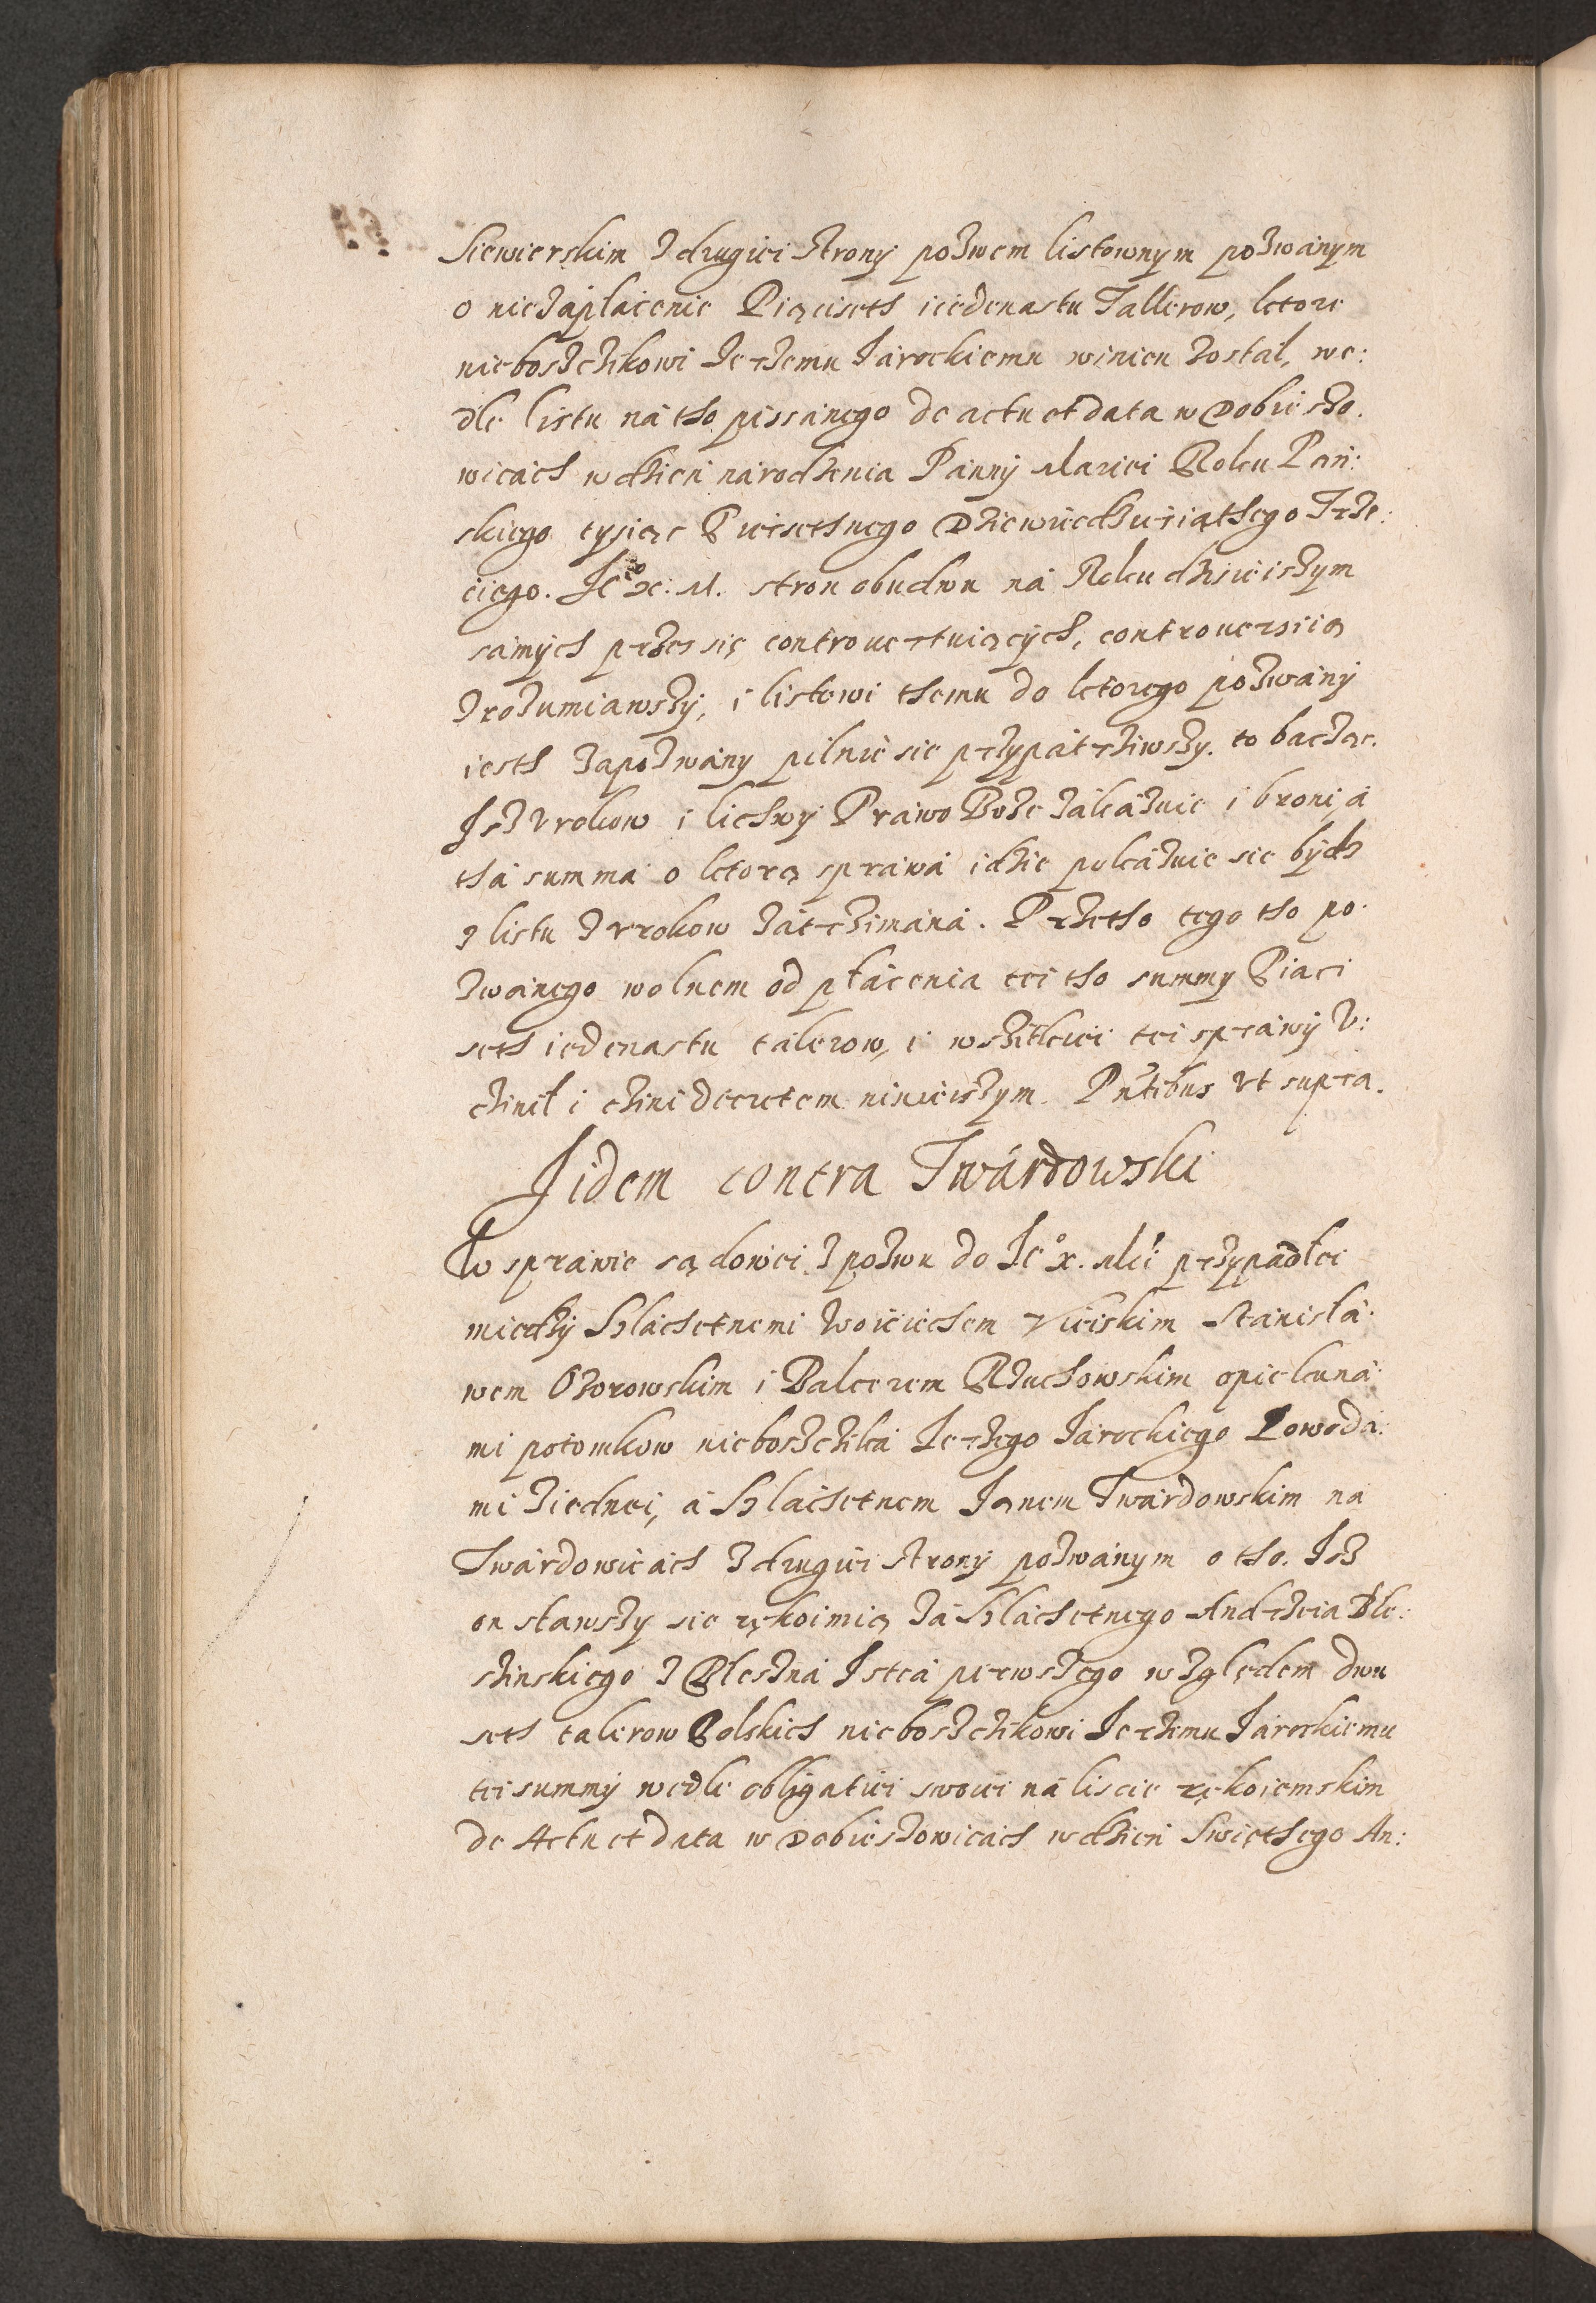 Siewierskim z drugiei strony pozwem listownym pozwánym
o niezápłácenie Piąciseth iiedenastu Tallerow, ktore
nieboszczikowi Jerzemu Járockiemu winien został, we:
dle listu ná tho pissánego de actu et data w Dobieszo.
wicách w dzień národzenia Pánny Mariei Roku Pań:
skiego tysiąc Pieisethnego Dziewiedziesiąthego Trze:
ciego. Jeº X: M. stron obudwu ná Roku dzisieiszym
sámych przes się controuertuiących, controuersiią
zrozumiawszy, i listowi themu do ktorego pozwány
iesth zapozwány pilnie sie przypátrziwszy. to bacząc.
Isz vrokow i lichwy Práwo Boże zákázuie i broni, á
thá summá o ktorą spráwá idzie pokázuie sie bydz
z listu z vrokow zátrzimáná. Przetho tego tho po:
zwánego wolnem od płácenia tei tho summy Piaci
seth iedenastu talerow, i wszitkiei tei spráwy v:
czinił i czini decretem ninieiszym. Pñtibus vt supra.
Iidem contra Twárdowski
W sprawie sądowei z pozwu do Jeº X. Mći przypádłei
miedzy Szláchetnemi Woiciechem Vieiskim Stanisłá:
wem Ożorowskim i Balcerem Rzuchowskim opiekuná:
mi potomkow nieboszcziká Jerzego Járockiego Powodá:
mi ziednei, á Szláchetnem Janem Twárdowskim na
Twárdowicách z drugiei strony pozwánym o tho. Isz
on stawszy sie rękoimią zá Szláchetnego Andrzeia Ble:
szinskiego z Bleszná Istcá pierwszego względem dwu
seth talerow Polskich nieboszczikowi Jerzemu Járockiemu
tei summy wedle obligatiei swoiei ná liscie rękoiemskim
de Actu et data w Dobieszowicách w dzień Swięthego An: